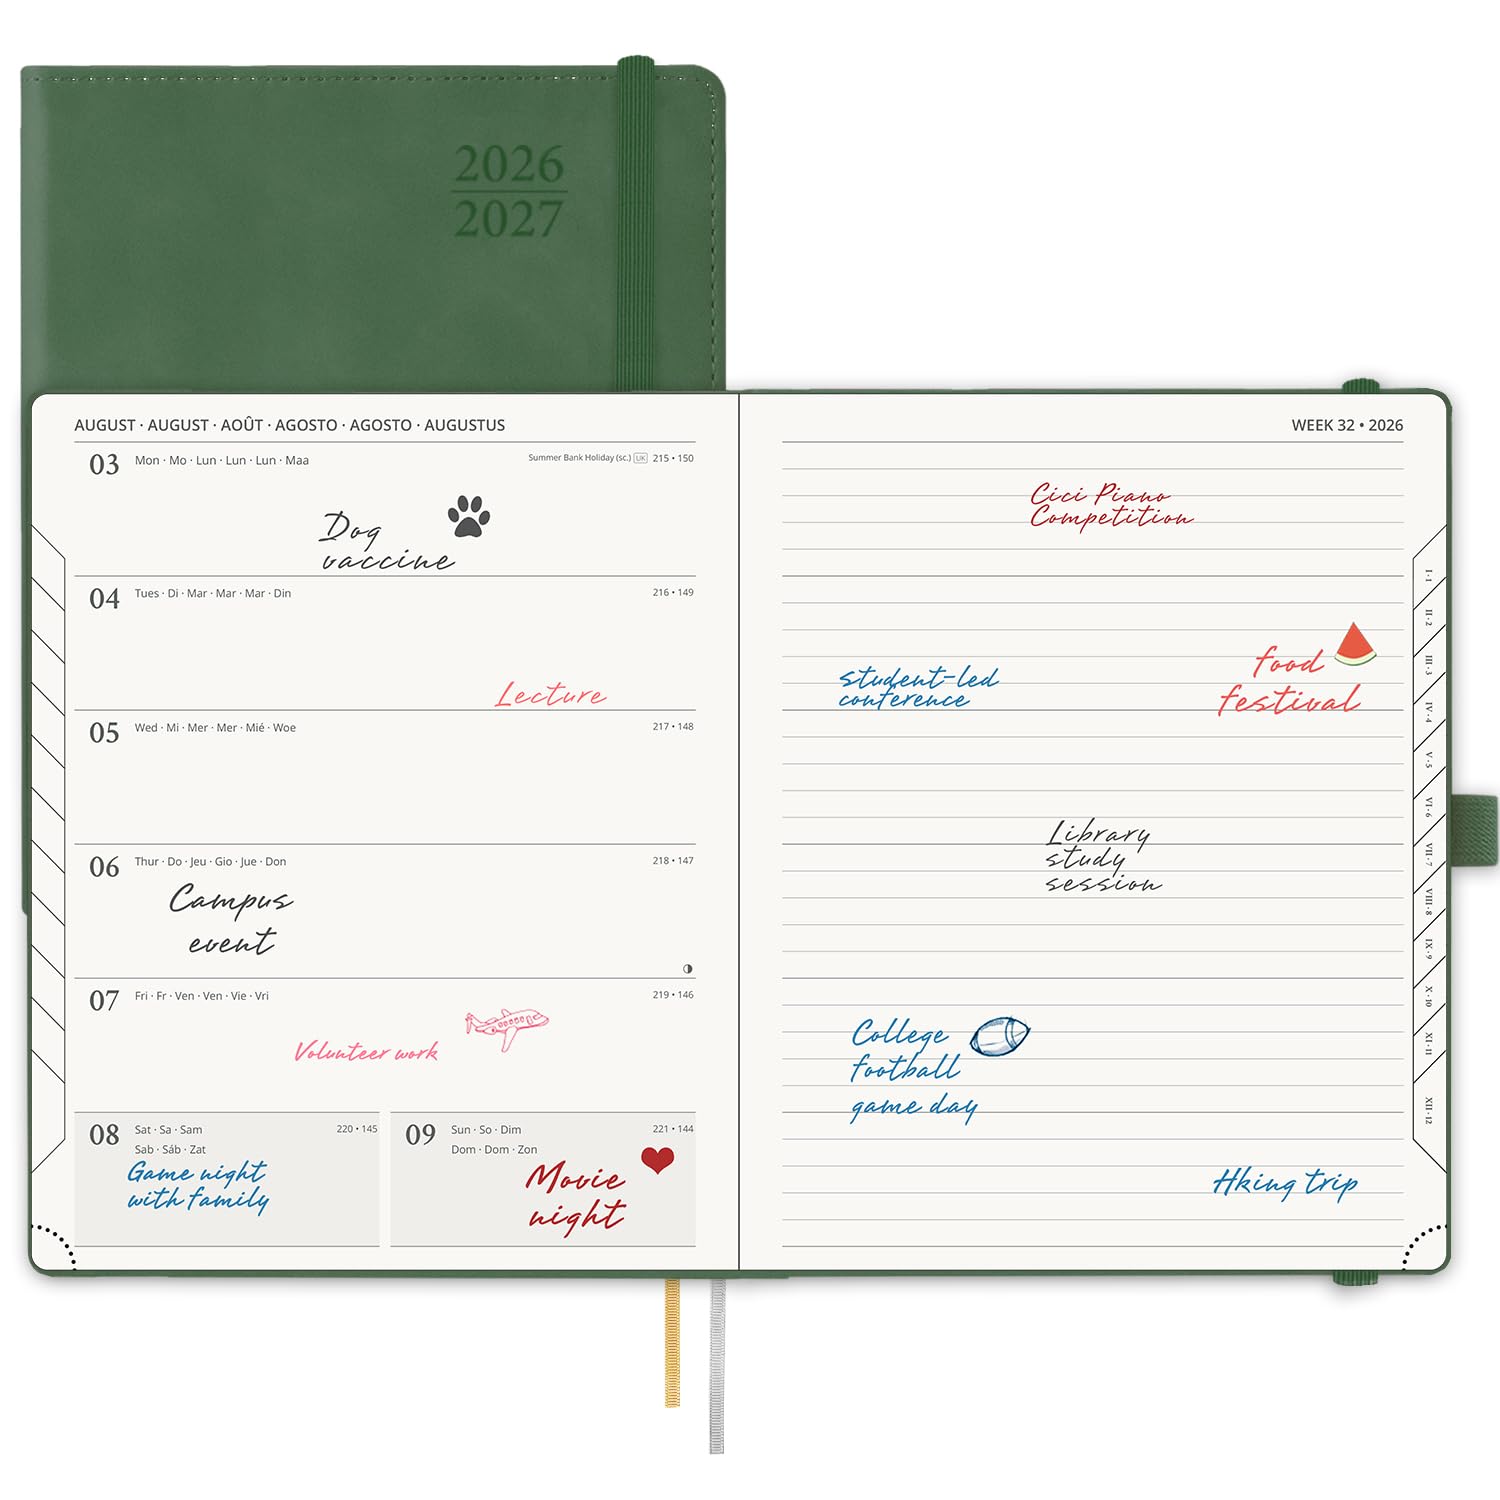 2026
2027
AUGUST · AUGUST · AOÛT · AGOSTO · AGOSTO · AUGUSTUS
03 Mon · Mo · Lun · Lun · Lun · Maa
Summer Bank Holiday (sc.) UK 215 • 150
Dog
vaccine
04 Tues · Di · Mar · Mar · Mar · Din
216 • 149
Lecture
05 Wed · Mi · Mer · Mer · Mié · Woe
217 • 148
06 Thur · Do · Jeu · Gio · Jue · Don
218 • 147
Campus
event
07 Fri · Fr · Ven · Ven · Vie · Vri
219 • 146
Volunteer work
08 Sat · Sa · Sam
220 • 145
Sab · Sáb · Zat
Game night
with family
09 Sun · So · Dim
221 • 144
Dom · Dom · Zon
Movie
night
WEEK 32 • 2026
Cici Piano
Competition
student-led
conference
food
festival
Library
study
session
College
football
game day
Hking trip
I · 1
II · 2
III · 3
IV · 4
V · 5
VI · 6
VII · 7
VIII · 8
IX · 9
X · 10
XI · 11
XII · 12